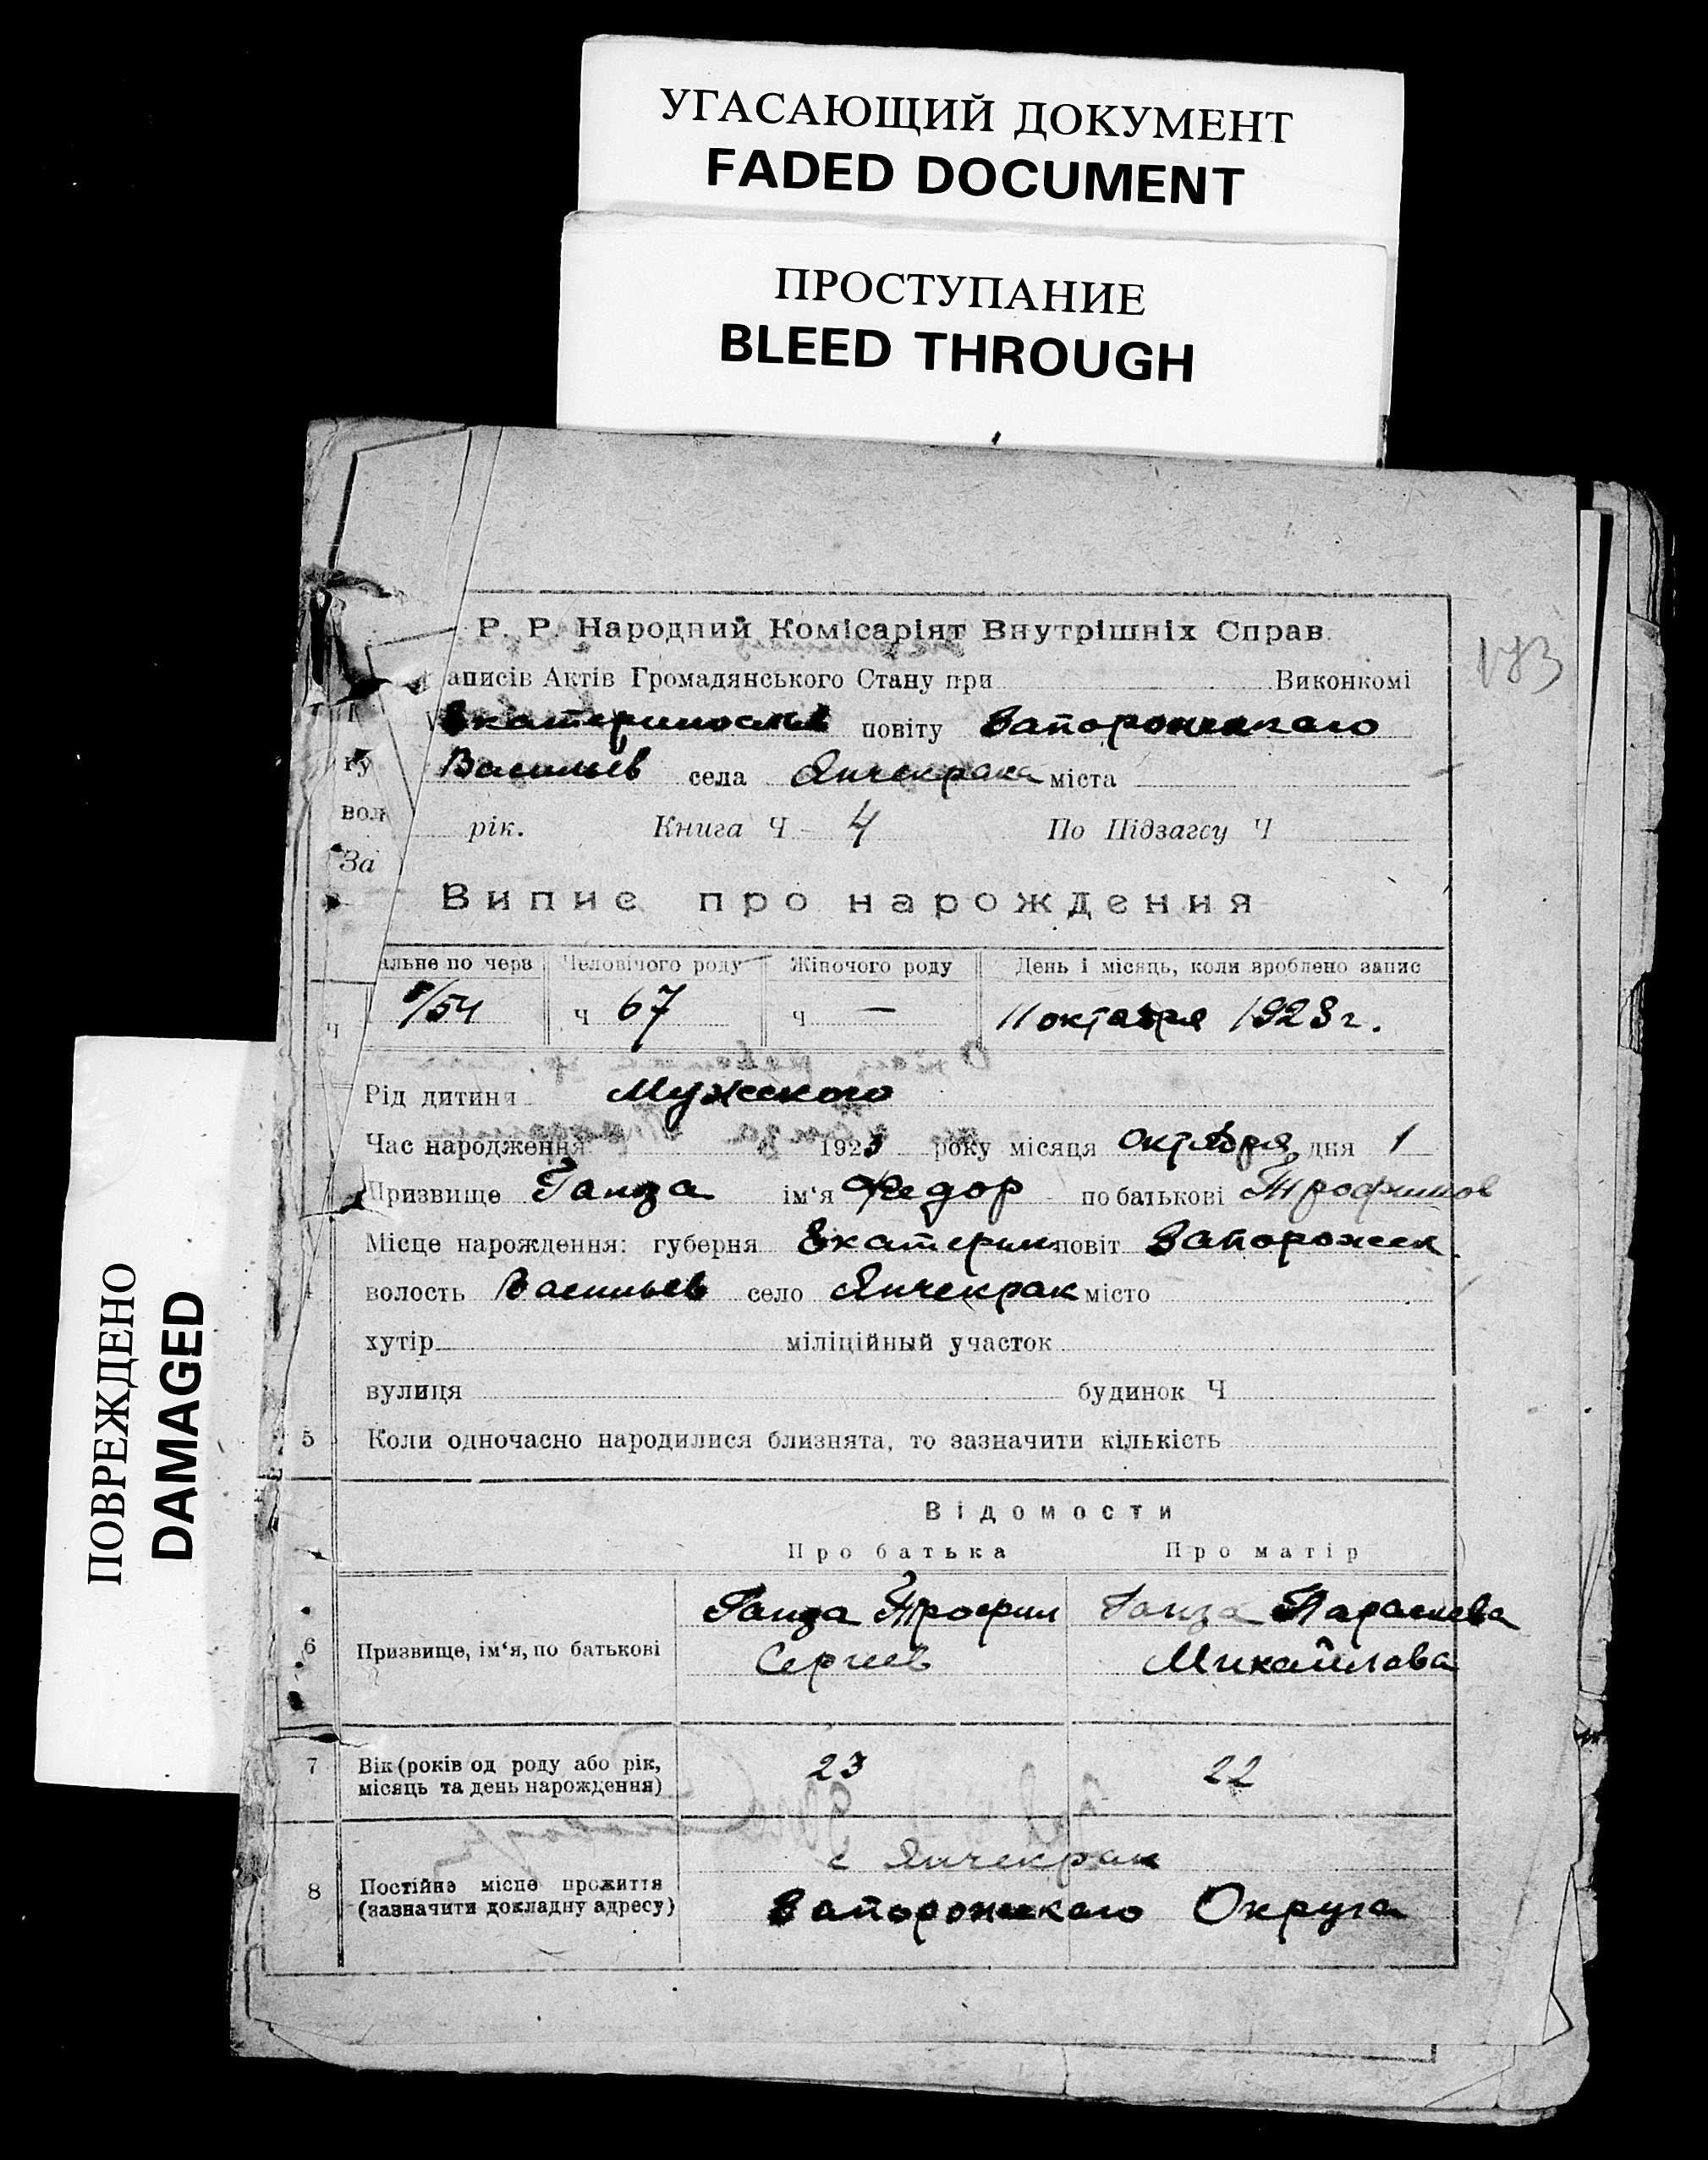 УГАСАЮЩИЙ ДОКУМЕНТ
FADED DOCUMENT
ПРОСТУПАНИЕ
BLEED THROUGH
ПОВРЕЖДЕНО
DAMAGED
183
Р. Р. Народний Комісаріят Внутрішніх Справ.
аписів Актів Громадянського Стану при Виконкомі
Екатеринослав повіту Запорожскаго
Васильев села Янчекрака міста
вол
рік. Книга Ч 4 По Підзагсу Ч
За
Випис про нарождення
альне по черв Человічого роду Жіночого роду День і місяць, коли зроблено запис
/54 ч 67 ч — 11 октября 1923 г.
Рід дитини Мужского
Час народження 1923 року місяця октября дня 1
Призвище Ганза ім'я Федор по батькові Трофимов
Місце нарождення: губерня Екатерин повіт Запорожск
волость Васильев село Янчекрак місто
хутір міліційный участок
вулиця будинок Ч
5 Коли одночасно народилися близнята, то зазначити кількість
Відомости
Про батька Про матір
Ганза Трофим Ганза Параскева
6 Призвище, ім'я, по батькові Сергиев Михайлова
7 Вік (років од роду або рік, 23 22
місяць та день нарождення)
с Янчекрак
8 Постійне місце прожиття
(зазначити докладну адресу) Запорожскаго Округа